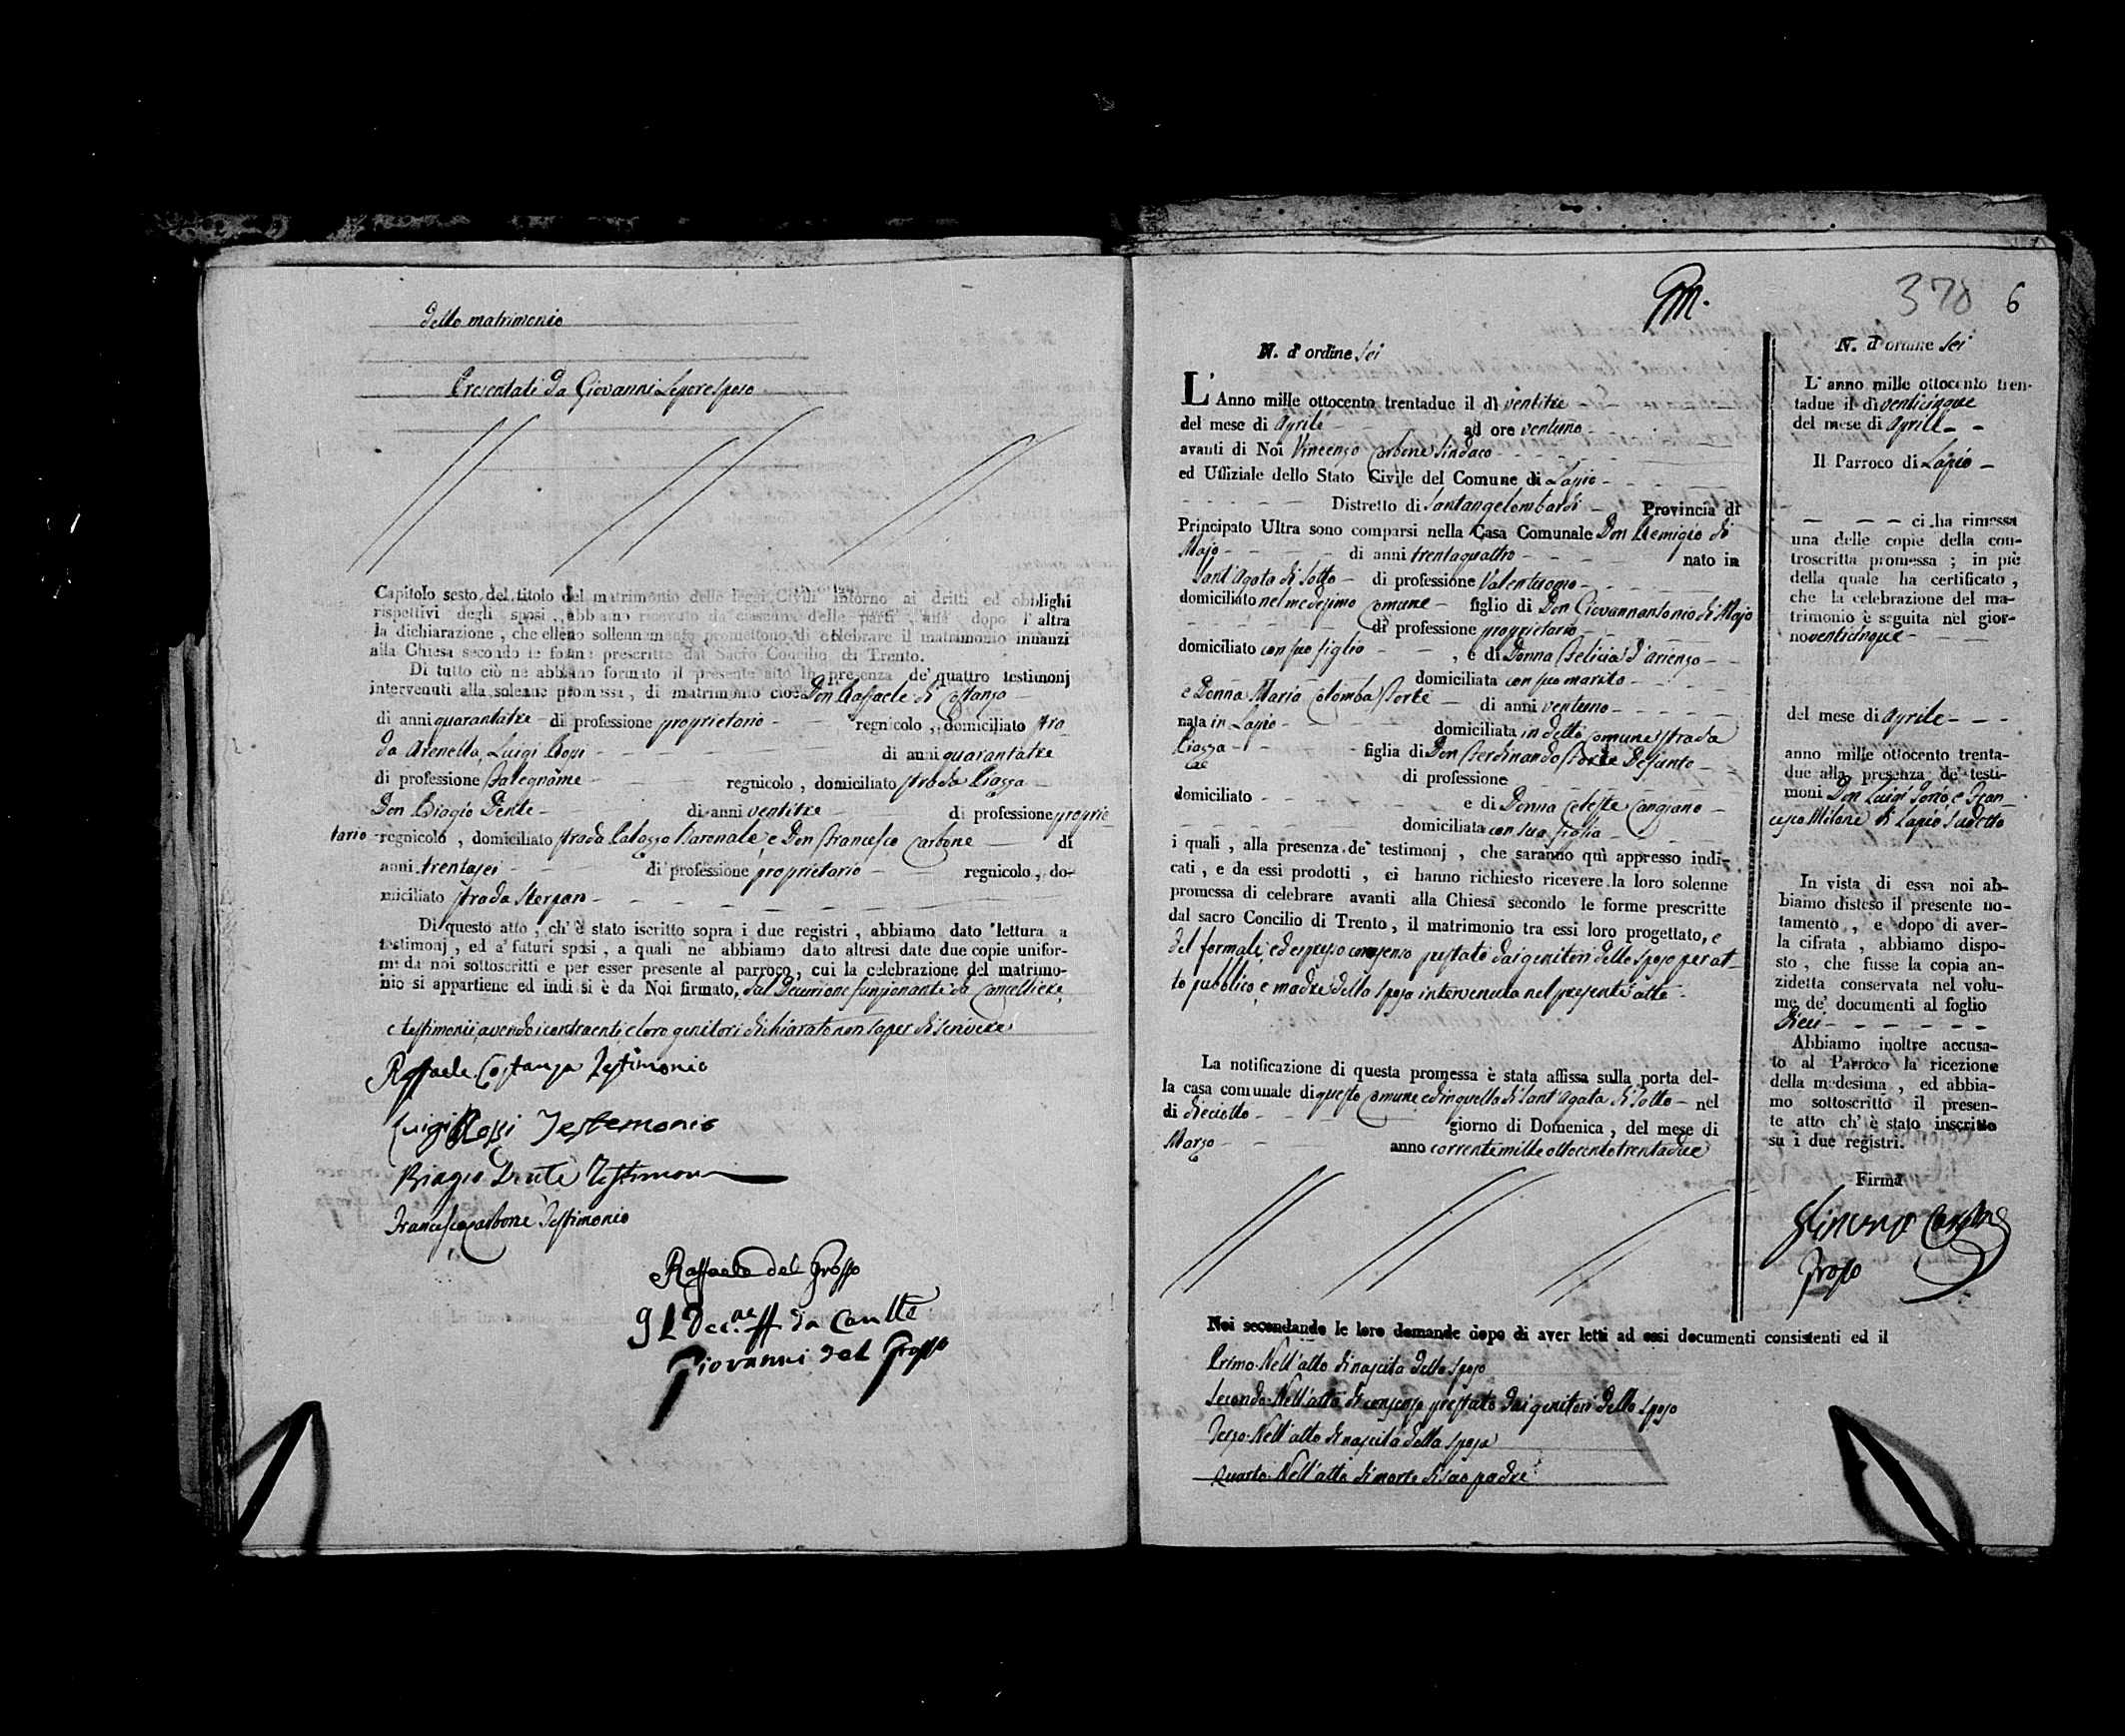 dello matrimonio
Presentati da Giovanni Lepore sposo
Capitolo sesto del titolo del matrimonio delle leggi Civili intorno ai dritti ed obblighi
rispettivi degli sposi, abbiamo ricevuto da ciascuna delle parti, una dopo l'altra
la dichiarazione, che elleno sollennemente promettono di celebrare il matrimonio innanzi
alla Chiesa secondo le forme prescritte dal Sacro Concilio di Trento.
Di tutto ciò ne abbiamo formato il presente atto in presenza de' quattro testimonj
intervenuti alla solenne promessa, di matrimonio cioè Don Raffaele di Costanzo
di anni quarantatre di professione proprietario regnicolo, domiciliato stra-
da Arenella, Luigi Rossi di anni quarantatre
di professione Falegname regnicolo, domiciliato strada Piazza
Don Biagio Dente di anni ventitre di professione proprie-
tario regnicolo, domiciliato strada Palazzo Baronale, e Don Francesco Carbone di
anni trentasei di professione proprietario regnicolo, do-
miciliato strada
Di questo atto, ch'è stato iscritto sopra i due registri, abbiamo dato lettura a
testimonj, ed a' futuri sposi, a quali ne abbiamo dato altresì date due copie unifor-
mi da noi sottoscritti e per esser presente al parroco, cui la celebrazione del matrimo-
nio si appartiene ed indi si è da Noi firmato, dal Decurione funzionante da Cancelliere,
e testimonii, avendo i contraenti, e loro genitori dichiarato non saper di scrivere
Raffaele Costanza Testimonio
Luigi Rossi Testemonio
Biagio Dente Testimon
Francesco Carbone Testimonio
Raffaele del Grosso
Giovanni del Grosso
378 6
N. d'ordine Sei
L'Anno mille ottocento trentadue il dì ventitre
del mese di Aprile ad ore ventuno
avanti di Noi Vincenzo Carbone Sindaco
ed Uffiziale dello Stato Civile del Comune di Lapio
Distretto di Santangelombardi Provincia di
Principato Ultra sono comparsi nella Casa Comunale Don Remigio di
Majo di anni trentaquattro nato in
Sant'Agata di Sotto di professione Valentuomo
domiciliato nel medesimo Comune figlio di Don Giovannantonio di Majo
di professione proprietario
domiciliato con suo figlio, e di Donna Felicia d'Arienzo
domiciliata con suo marito
e Donna Maria Colomba Forte di anni ventuno
nata in Lapio domiciliata in detto Comune strada
Piazza figlia di Don Ferdinando Forte Defunto
di professione
domiciliato e di Donna Celeste Cangiano
domiciliata con sua figlia
i quali, alla presenza de' testimonj, che saranno quì appresso indi-
cati, e da essi prodotti, ci hanno richiesto ricevere la loro solenne
promessa di celebrare avanti alla Chiesa secondo le forme prescritte
dal sacro Concilio di Trento, il matrimonio tra essi loro progettato, e
del formale, ed espresso consenso prestato dai genitori dello sposo per at-
to pubblico, e madre della sposa intervenuta nel presente atto
La notificazione di questa promessa è stata affissa sulla porta del-
la casa comunale di questo Comune, ed in quella di Sant'Agata di Sotto nel
di dieciotto giorno di Domenica, del mese di
Marzo anno corrente mille ottocento trentadue
Noi secondando le loro domande dopo di aver letti ad essi documenti consistenti ed il
Primo. Nell'atto di nascita dello sposo
Secondo. Nell'atto di consenso prestato dai genitori dello sposo
Terzo. Nell'atto di nascita della sposa
Quarto. Nell'atto di morte di suo padre
N. d'ordine Sei
L'anno mille ottocento tren-
tadue il dì venticinque
del mese di Aprile
Il Parroco di Lapio
ci ha rimessa
una delle copie della con-
troscritta promessa; in piè
della quale ha certificato,
che la celebrazione del ma-
trimonio è seguita nel gior-
no venticinque
del mese di Aprile
anno mille ottocento trenta-
due alla presenza de' testi-
moni Don Luigi e Fran-
cesco Milone di Lapio sudetto
In vista di essa noi ab-
biamo disteso il presente no-
tamento, e dopo di aver-
la cifrata, abbiamo dispo-
sto, che fusse la copia an-
zidetta conservata nel volu-
me de' documenti al foglio
Dieci
Abbiamo inoltre accusa-
to al Parroco la ricezione
della medesima, ed abbia-
mo sottoscritto il presen-
te atto ch'è stato inscritto
su i due registri.
Firma
Vincenzo Carbone
Grosso